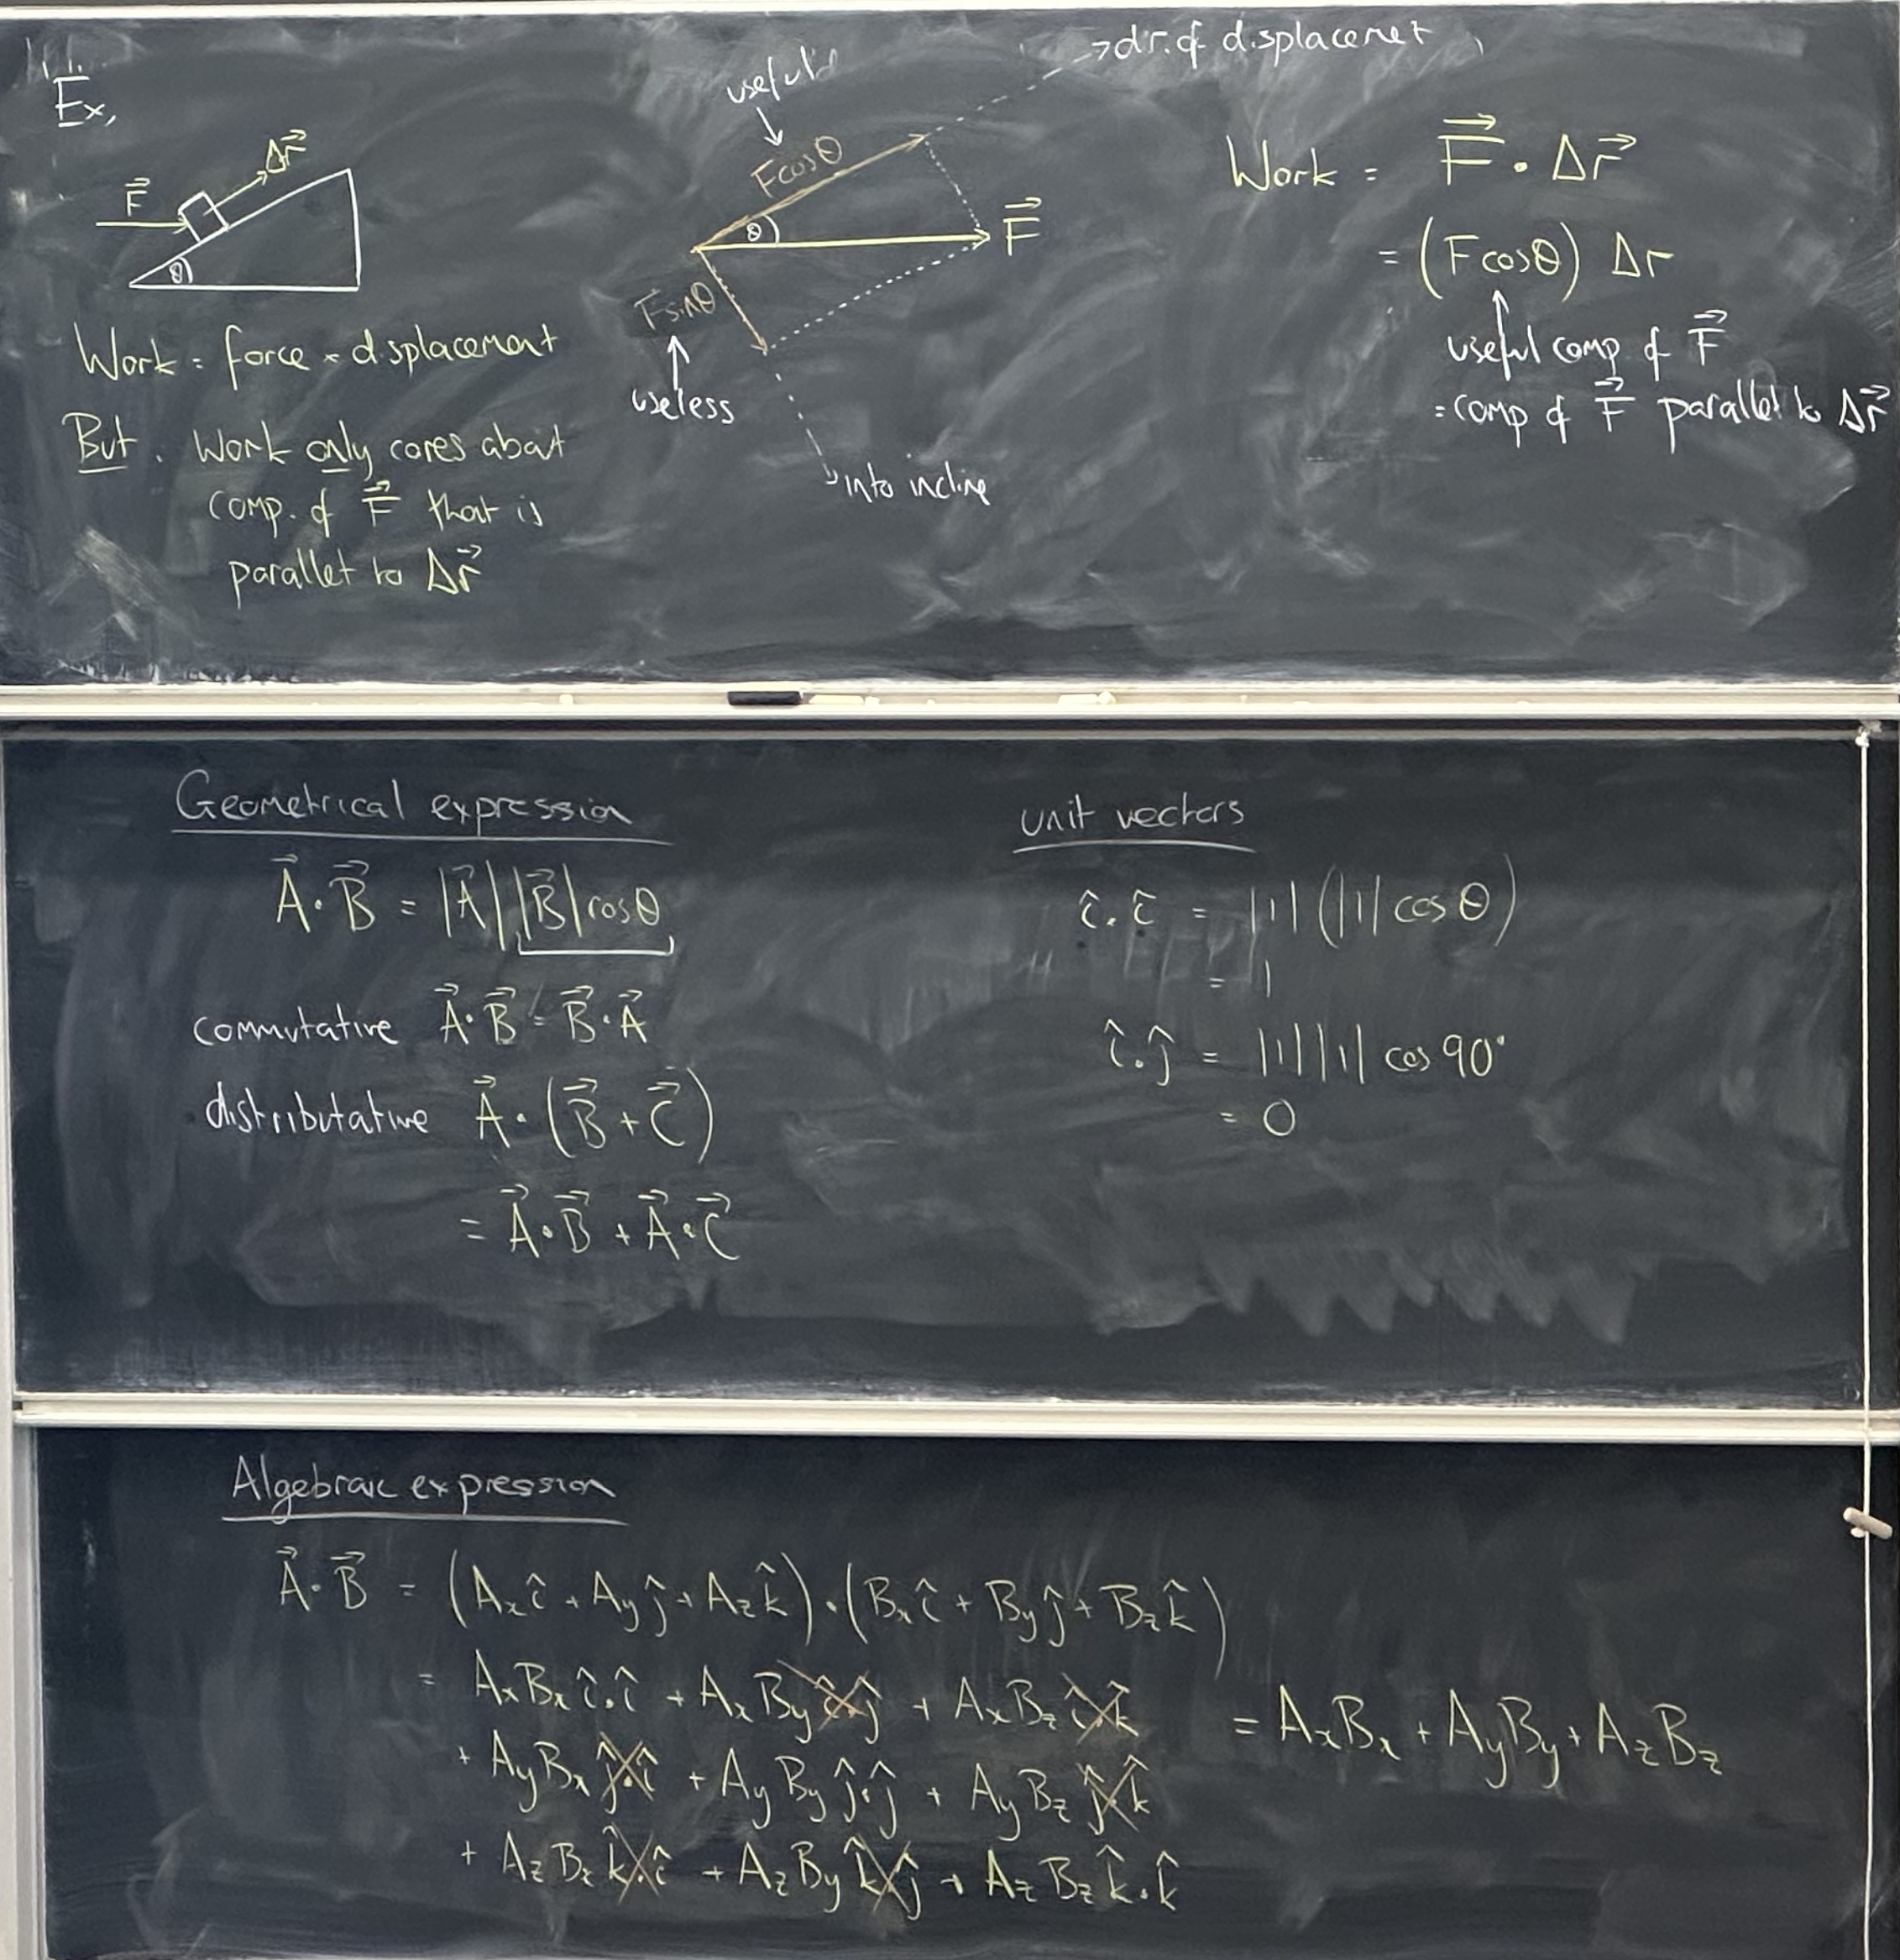 Ex,
F⃗
Δr⃗
θ
Work = force × displacement
But. Work only cares about
comp. of F⃗ that is
parallel to Δr⃗
→ dir. of displacemet
useful
Fcosθ
θ
F⃗
Fsinθ
useless
into incline
Work = F⃗ · Δr⃗
= (Fcosθ) Δr
useful comp of F⃗
= comp of F⃗ parallel to Δr⃗
Geometrical expression
A⃗·B⃗ = |A⃗||B⃗|cosθ
commutative A⃗·B⃗ = B⃗·A⃗
distributative A⃗·(B⃗ + C⃗)
= A⃗·B⃗ + A⃗·C⃗
unit vectors
î·î = |1|(|1| cosθ)
= 1
î·ĵ = |1||1| cos 90°
= 0
Algebraic expression
A⃗·B⃗ = (Aₓî + A_yĵ + A_zk̂)·(Bₓî + B_yĵ + B_zk̂)
= AₓBₓ î·î + AₓB_y î·ĵ + AₓB_z î·k̂
+ A_yBₓ ĵ·î + A_yB_y ĵ·ĵ + A_yB_z ĵ·k̂
+ A_zBₓ k̂·î + A_zB_y k̂·ĵ + A_zB_z k̂·k̂
= AₓBₓ + A_yB_y + A_zB_z